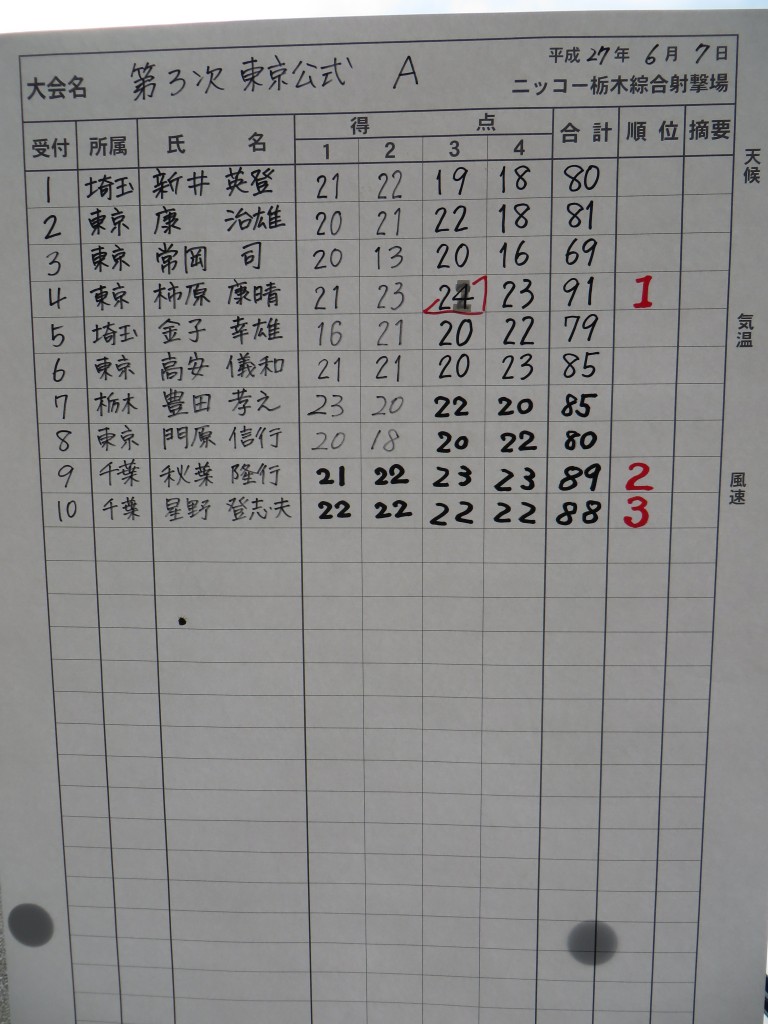 平成 27年 6月 7日
大会名 第3次 東京公式 A ニッコー栃木綜合射撃場
受付 所属 氏 名 得 点 合計 順位 摘要
1 2 3 4
1 埼玉 新井 英登 21 22 19 18 80
2 東京 康 治雄 20 21 22 18 81
3 東京 常岡 司 20 13 20 16 69
4 東京 柿原 康晴 21 23 24 23 91 1
5 埼玉 金子 幸雄 16 21 20 22 79
6 東京 高安 儀和 21 21 20 23 85
7 栃木 豊田 孝之 23 20 22 20 85
8 東京 門原 信行 20 18 20 22 80
9 千葉 秋葉 隆行 21 22 23 23 89 2
10 千葉 星野 登志夫 22 22 22 22 88 3
天候
気温
風速